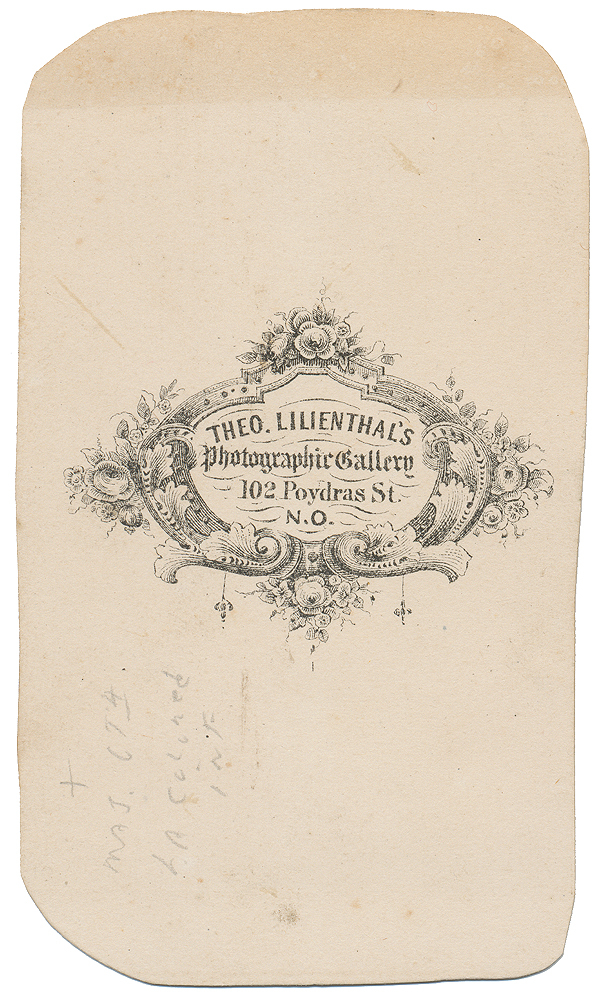 THEO. LILIENTHAL'S
Photographic Gallery
102 Poydras St.
N.O.
MAJ.
LA Colored
INF